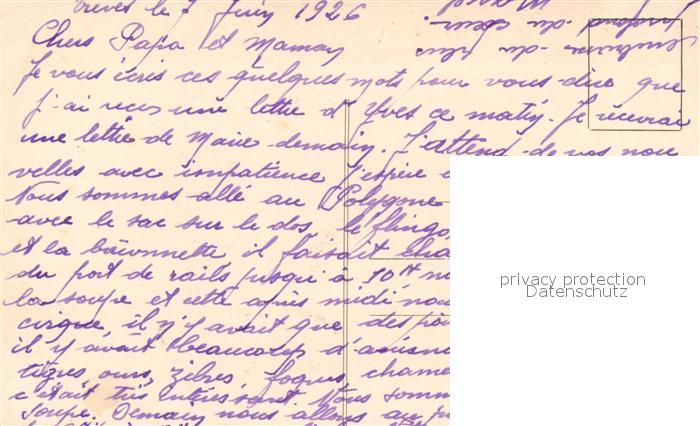 Trèves le 7 Juin 1926
Chers Papa et Maman
Je vous écris ces quelques mots pour vous dire que
j'ai reçu une lettre d'Yves ce matin. Je recevrai
une lettre de Marie demain. J'attend de vos nou
velles avec impatience j'espère
Nous sommes allé au Polygone
avec le sac sur le dos, le flingo,
et la baïonnette il faisait cha
du port de rails jusqu'à 10H
la soupe et cette après midi nou
cirque, il n'y avait que des
il y avait beaucoup d'anim
tigres, ours, zèbres, foques, chame
c'était très intéressant. Nous somm
soupe. Demain nous allons au
du cœur.
du plus
privacy protection
Datenschutz